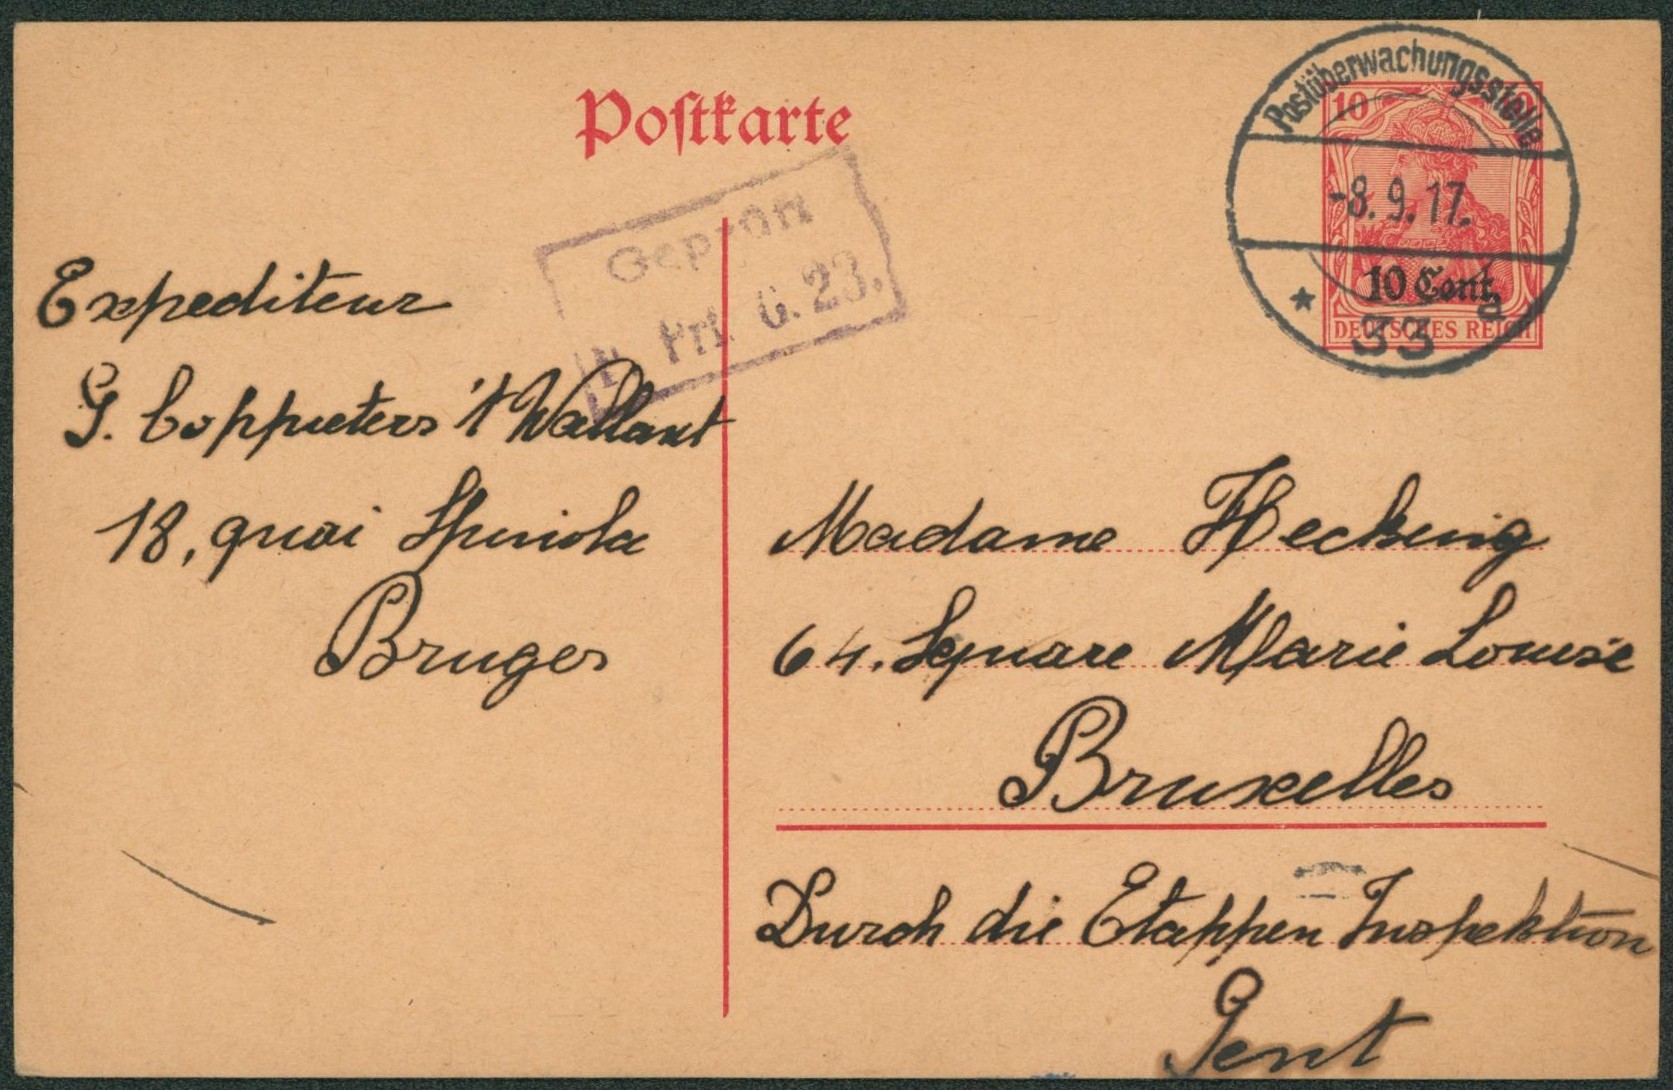 Postkarte
Postüberwachungsstelle
-8. 9. 17.
* 33 a
10 10
10 Cent.
DEUTSCHES REICH
P. Prf. G. 23.
Expediteur
G. Coppieters 't Wallant
18, quai Spinola
Bruges
Madame Hecking
64. Square Marie Louise
Bruxelles
Durch die Etappen Inspektion
Gent